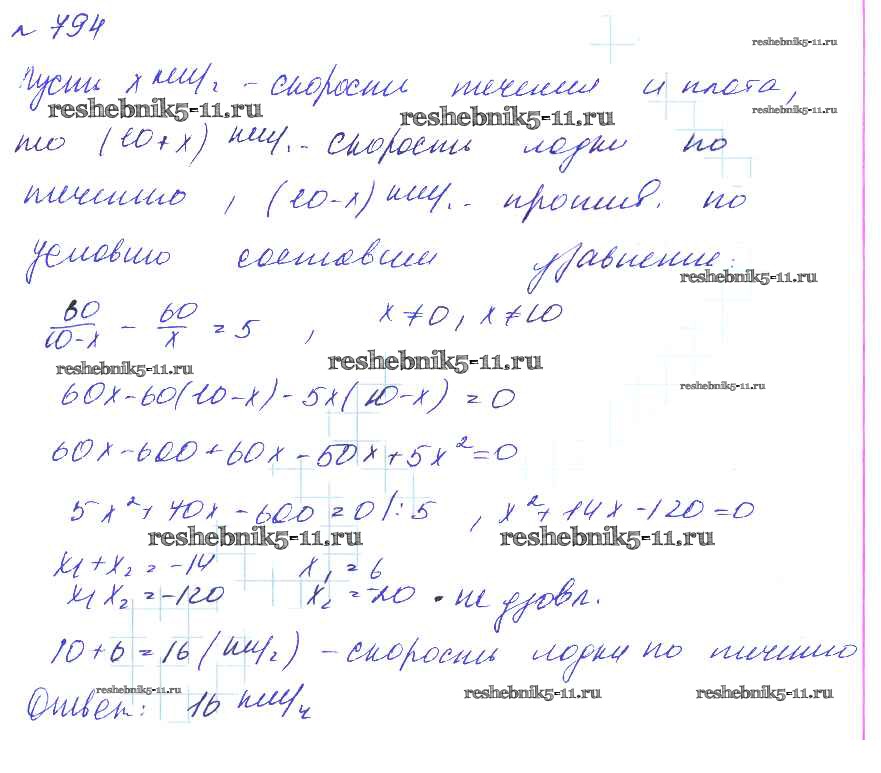 № 794
reshebnik5-11.ru
Пусть x км/ч - скорость течения и плота,
reshebnik5-11.ru reshebnik5-11.ru reshebnik5-11.ru
то (10+x) км/ч - скорость лодки по
течению, (10-x) км/ч - против. по
условию составим уравнение:
reshebnik5-11.ru
60/(10-x) - 60/x = 5, x≠0, x≠10
reshebnik5-11.ru reshebnik5-11.ru
reshebnik5-11.ru
60x-60(10-x)-5x(10-x)=0
60x-600+60x-50x+5x²=0
5x²+70x-600=0 |:5, x²+14x-120=0
reshebnik5-11.ru reshebnik5-11.ru
x₁+x₂=-14 x₁=6
x₁x₂=-120 x₂=-20 - не удовл.
10+6=16 (км/ч) - скорость лодки по течению
reshebnik5-11.ru reshebnik5-11.ru reshebnik5-11.ru
Ответ: 16 км/ч